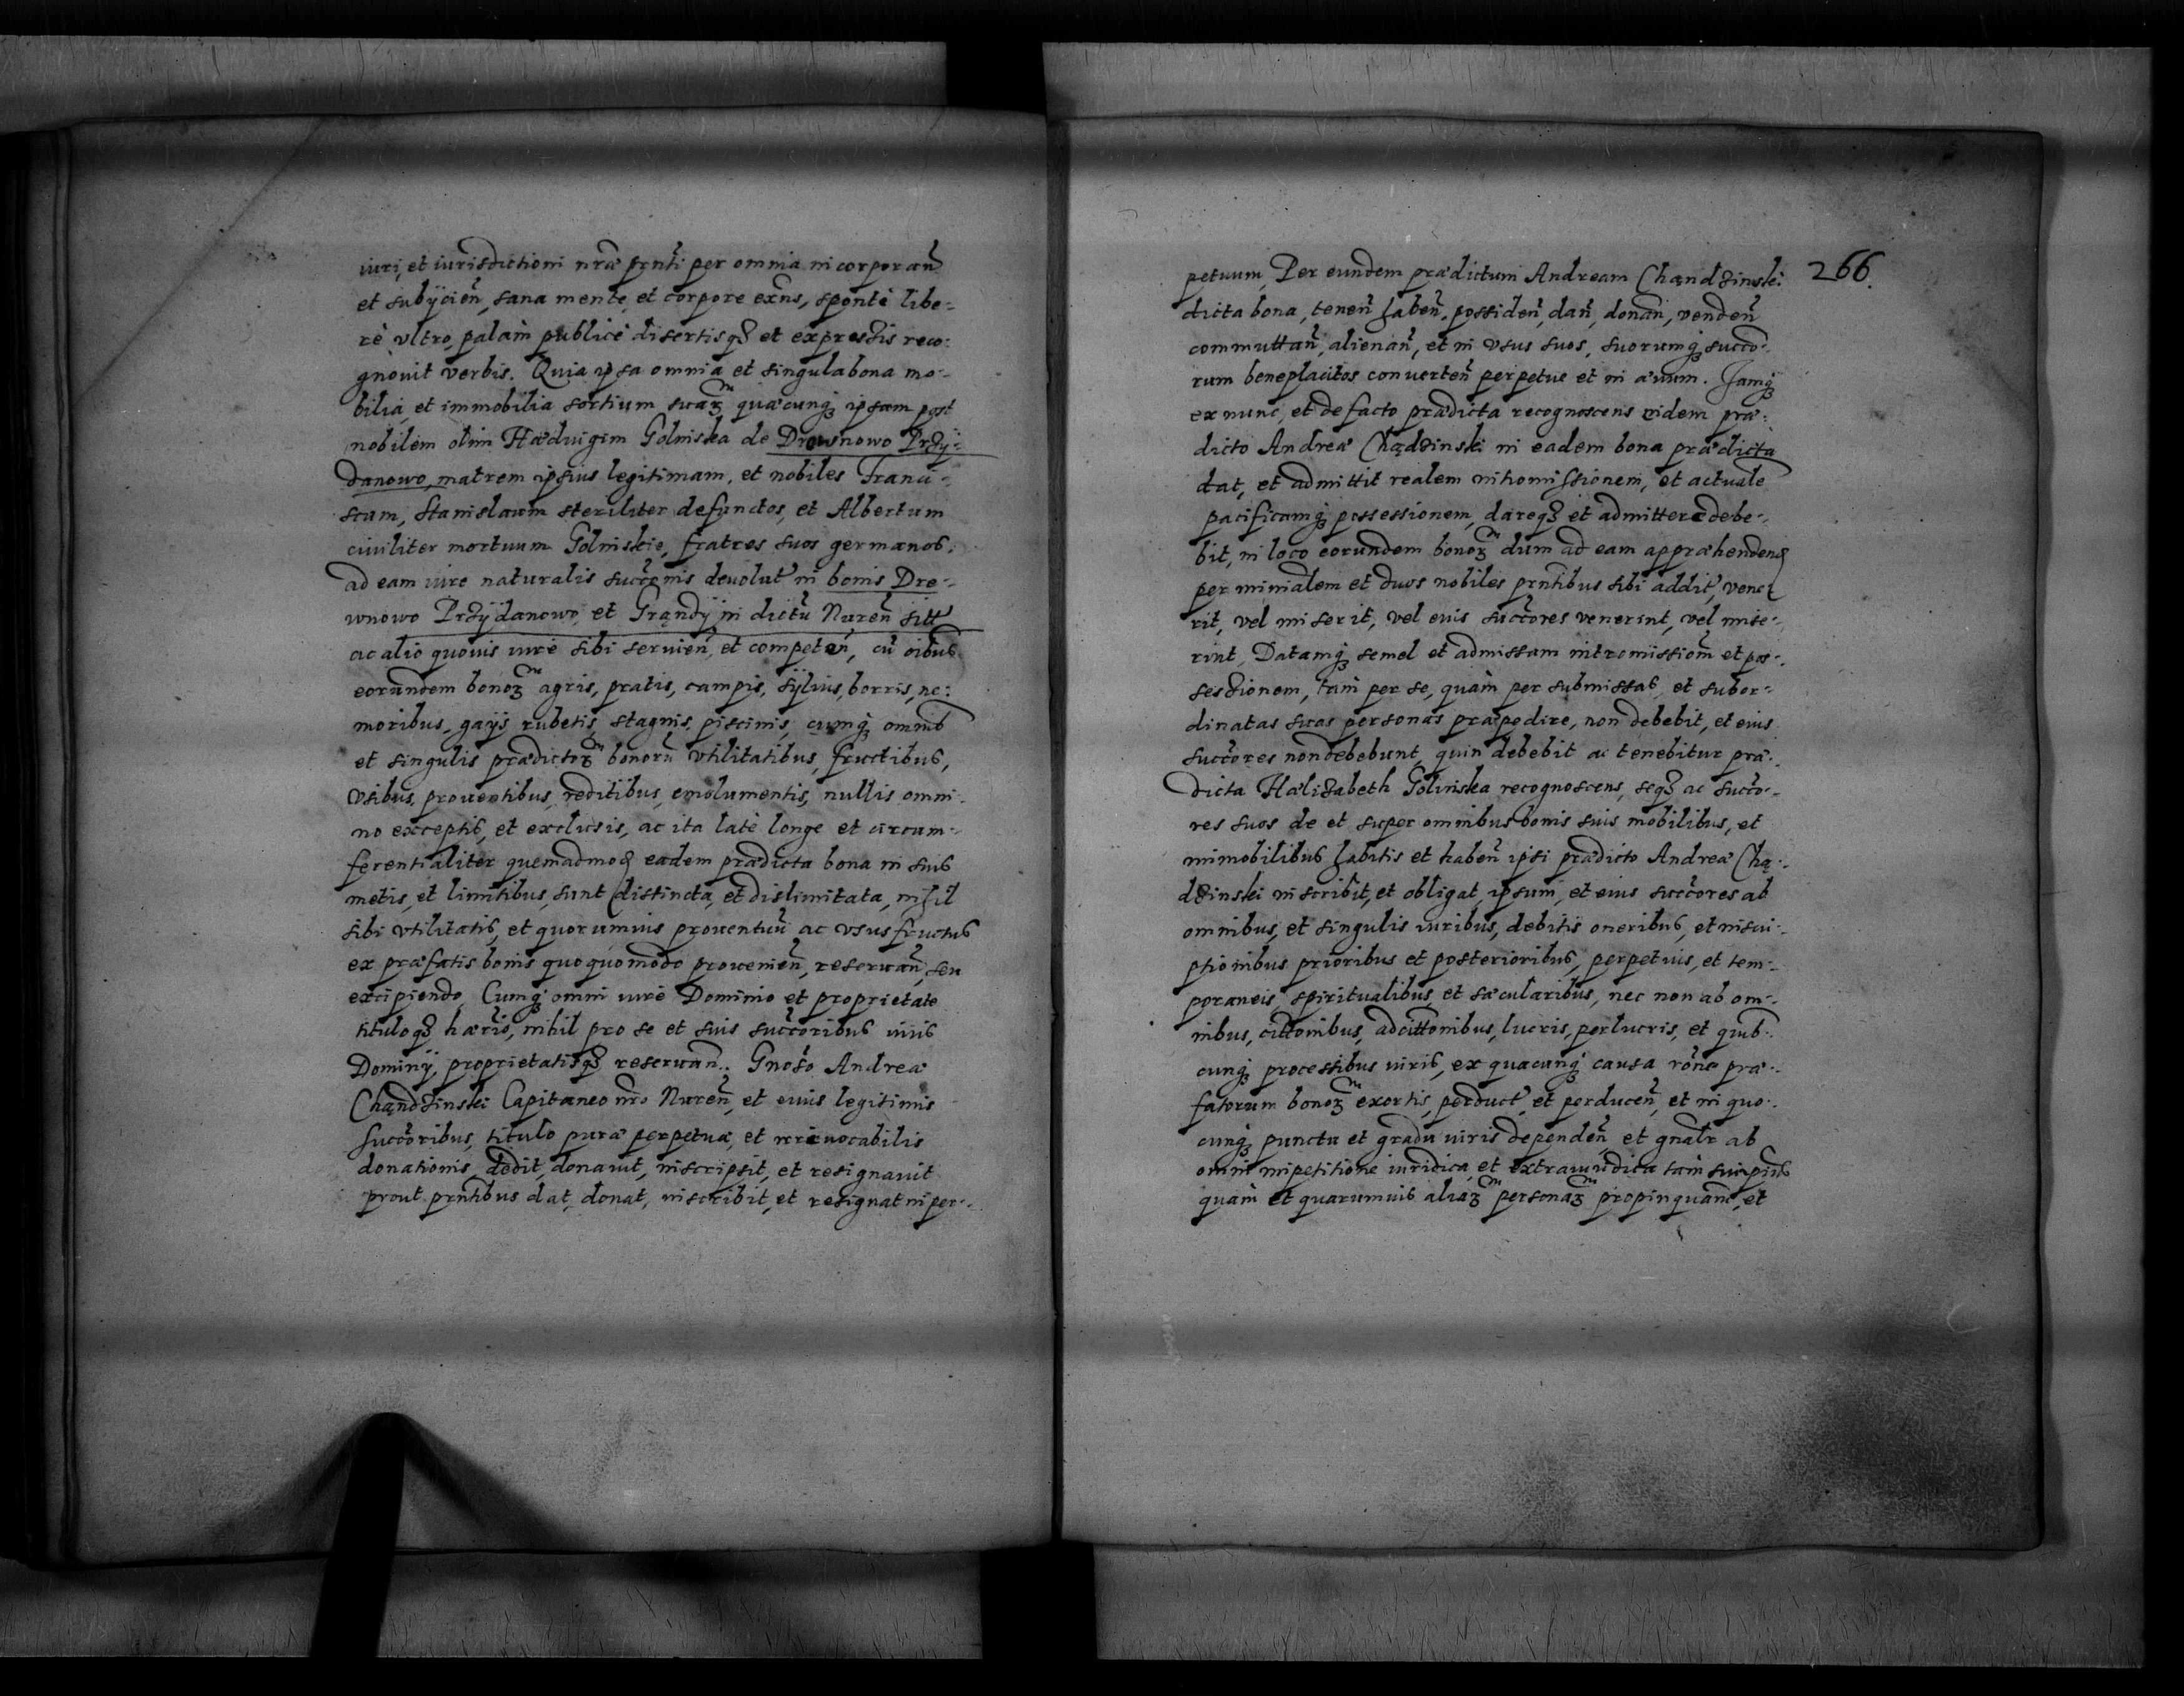 iuri, et iurisdictioni nrae prnti per omnia incorporan̄
et subÿcien̄, sana mente, et corpore exn̄s, spontè libe-
rè vltro, palàm publicè disertisqȝ et expressis reco-
gnouit verbis. Quia ipsa omnia et singula bona mo-
bilia, et immobilia sortium suaȝ quæcunqȝ ipsam post
nobilem olim Hæduigim Golinska de Drewnowo Przÿ-
danowo, matrem ipsius legitimam, et nobiles Franci-
scum, Stanislaum steriliter defunctos, et Albertum
ciuiliter mortuum Golinskie, fratres suos germanos,
ad eam iure naturalis succ̄nis deuolut̄ in bonis Dre-
wnowo Przÿdanowo, et Grądÿ in dictū Nuren̄ sitt̄
ac alio quouis iure sibi seruien̄, et competen̄, cū oibus
eorundem bonoȝ agris, pratis, campis, sÿluis, borris, ne-
moribus, gaÿs rubetis, stagnis, piscinis, cumqȝ omnib
et singulis prædictoȝ bonorū vtilitatibus, fructibus,
vsibus, prouentibus, reditibus, emolumentis, nullis omni-
no exceptis, et exclusis, ac ita latè longe et circum-
ferentialiter quemadmoȝ eadem prædicta bona in suis
metis, et limitibus, sunt distincta, et dislimitata, nihil
sibi vtilitatis, et quorumuis prouentuū ac vsusfructus
ex præfatis bonis quoquomodo prouenien̄, reseruan̄, seu
excipiendo, Cumqȝ omni iure Dominio et proprietate
tituloqȝ hæriō, nihil pro se et suis succ̄oribus iuris
Dominÿ, proprietatisqȝ reseruan̄. Gnoso Andreæ
Chądzinski Capitaneo nr̄o Nuren̄, et eiuis legitimis
succ̄oribus, titulo puræ perpetuæ, et irreuocabilis
donationis, dedit, donauit, inscripsit, et resignauit
prout prn̄tibus dat, donat, inscribit, et resignat in per-
266.
petuum, Per eundem prædictum Andream Chandzinski
dicta bona, tenen̄ haben̄, possiden̄, dan̄, donan̄, venden̄
commuttan̄, alienan̄, et in vsus suos, suorumqȝ succō-
rum beneplacitos conuerten̄ perpetue et in æuum. Jamqȝ
ex nunc, et de facto prædicta recognoscens eidem præ-
dicto Andreæ Chądzinski in eadem bona prædicta
dat, et admittit realem intromissionem, et actuale
pacificamqȝ possessionem, dareqȝ et admittere debe-
bit, in loco eorundem bonoȝ dum ad eam appræhendenȝ
per minialem et duos nobiles prn̄tibus sibi addit̄, vene-
rit, vel miserit, vel eius succ̄ores venerint, vel mise-
rint, Datamqȝ semel et admissam intromissiom̄ et pos-
sessionem, tàm per se, quàm per submissas, et subor-
dinatas suas personas præpedire, non debebit, et eius
succ̄ores non debebunt, quin debebit ac tenebitur præ-
dicta Hælizabeth Golinska recognoscens, seqȝ ac succ̄o-
res suos de et super omnibus bonis suis mobilibus, et
immobilibus habitis et haben̄ ipsi prædicto Andreæ Chą-
dzinski inscribit, et obligat, ipsum, et eius succ̄ores ab
omnibus, et singulis iuribus, debitis oneribus, et inscri-
ptionibus prioribus et posterioribus, perpetuis, et tem-
poraneis, spiritualibus, et sæcularibus, nec non ab om-
nibus, citt̄onibus, adcitt̄onibus, lucris, perlucris, et quib-
cunqȝ processibus iuris, ex quacunqȝ causa rōne præ-
fatorum bonoȝ exortis, perduct̄, et perducen̄, et in quo-
cunqȝ punctu et gradu iuris dependen̄, et gn̄alr̄ ab
omni impetitione iuridica, et extraiuridica tàm sui ipsius
quàm et quarumuis aliaȝ personaȝ propinquam̄, et